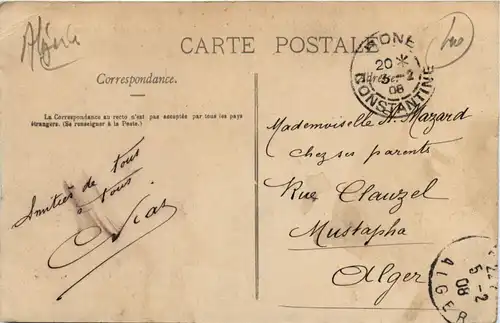 Algérie
CARTE POSTALE
BONE
20 *
5-2
08
CONSTANTINE
Correspondance.
La Correspondance au recto n'est pas acceptée par tous les pays
étrangers. (Se renseigner à la Poste.)
Amitiés de tous
à tous
Mademoiselle N. Mazard
chez ses parents
Rue Clauzel
Mustapha
Alger
5-2
08
ALGER